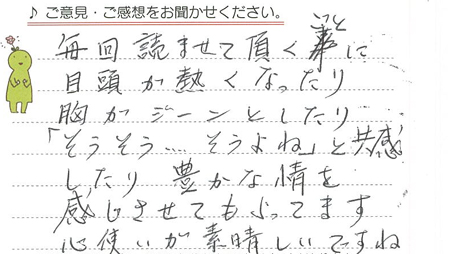 ♪ ご意見・ご感想をお聞かせください。
毎回読ませて頂く事に
目頭が熱くなったり
胸がジーンとしたり
「そうそう…そうよね」と共感
したり 豊かな情を
感じさせてもらってます
心使いが素晴しいですね